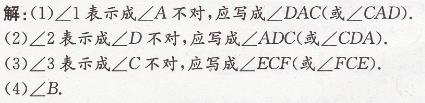 解:(1)∠1表示成∠A不对,应写成∠DAC(或∠CAD).
(2)∠2表示成∠D不对,应写成∠ADC(或∠CDA).
(3)∠3表示成∠C不对,应写成∠ECF(或∠FCE).
(4)∠B.